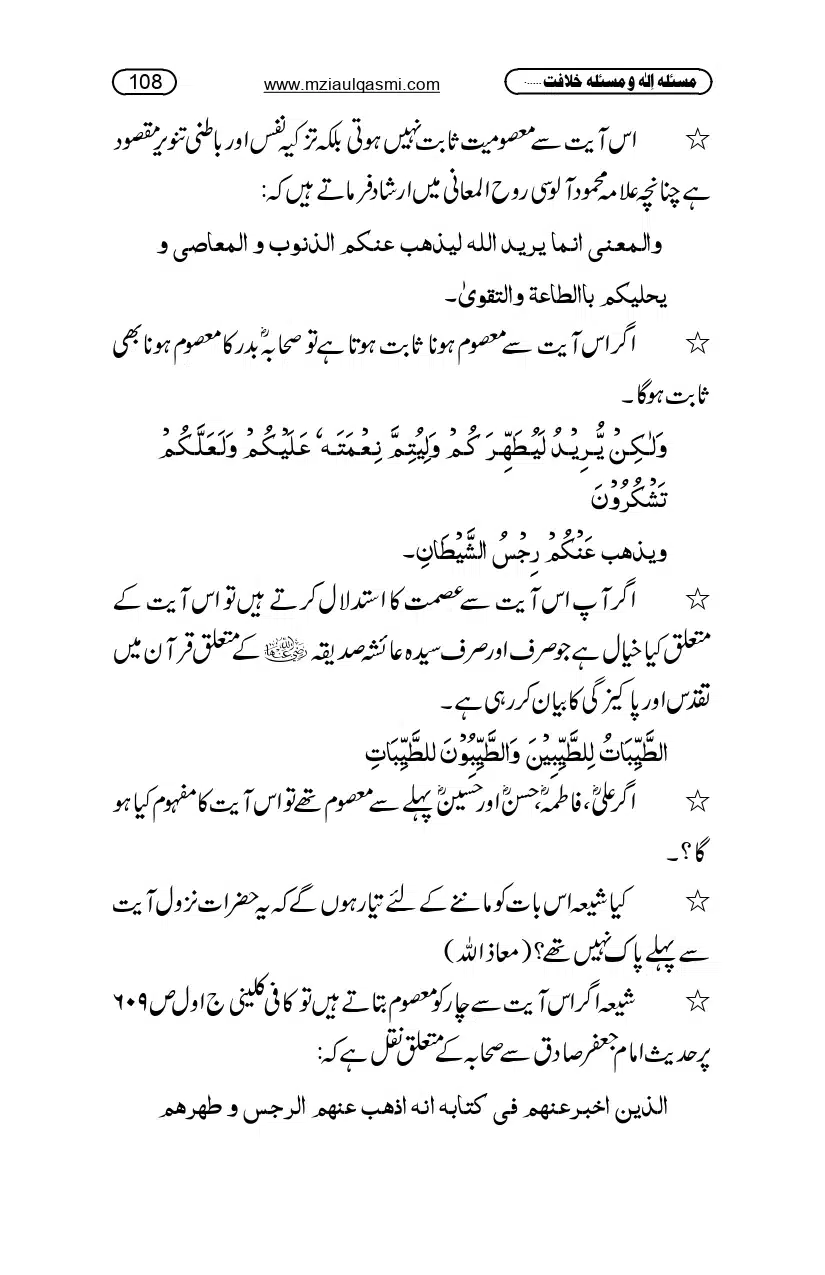 مسئلہ اِلٰہ و مسئلہ خلافت ...... www.mziaulqasmi.com 108
☆ اس آیت سے معصومیت ثابت نہیں ہوتی بلکہ تزکیہ نفس اور باطنی تنویر مقصود
ہے چنانچہ علامہ محمود آلوسی روح المعانی میں ارشاد فرماتے ہیں کہ:
والمعنی انما یرید اللہ لیذهب عنکم الذنوب و المعاصی و
یحلیکم باالطاعة والتقویٰ۔
☆ اگر اس آیت سے معصوم ہونا ثابت ہوتا ہے تو صحابہؓ بدر کا معصوم ہونا بھی
ثابت ہوگا۔
وَلٰـكِنْ يُّرِيْدُ لَيُطَهِّرَ كُمْ وَلِيُتِمَّ نِعْمَتَهٗ عَلَيْكُمْ وَلَعَلَّكُمْ
تَشْكُرُوْنَ
ویذهب عَنْكُمْ رِجْسُ الشَّيْطَانِ۔
☆ اگر آپ اس آیت سے عصمت کا استدلال کرتے ہیں تو اس آیت کے
متعلق کیا خیال ہے جو صرف اور صرف سیدہ عائشہ صدیقہ رضی اللہ عنہا کے متعلق قرآن میں
تقدس اور پاکیزگی کا بیان کر رہی ہے۔
الطَّيِّبَاتُ لِلطَّيِّبِيْنَ وَالطَّيِّبُوْنَ للطَّيِّبَاتِ
☆ اگر علیؓ، فاطمہؓ، حسنؓ اور حسینؓ پہلے سے معصوم تھے تو اس آیت کا مفہوم کیا ہو
گا؟۔
☆ کیا شیعہ اس بات کو ماننے کے لئے تیار ہوں گے کہ یہ حضرات نزول آیت
سے پہلے پاک نہیں تھے؟ (معاذ اللہ)
☆ شیعہ اگر اس آیت سے چار کو معصوم بتاتے ہیں تو کافی کلینی ج اول ص ۶۰۹
پر حدیث امام جعفر صادق سے صحابہ کے متعلق نقل ہے کہ:
الذین اخبرعنهم فی کتابه انه اذهب عنهم الرجس و طهرهم